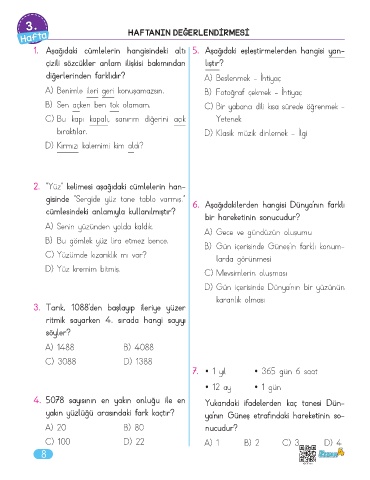 3.
Hafta
HAFTANIN DEĞERLENDİRMESİ
1. Aşağıdaki cümlelerin hangisindeki altı
çizili sözcükler anlam ilişkisi bakımından
diğerlerinden farklıdır?
A) Benimle ileri geri konuşamazsın.
B) Sen açken ben tok olamam.
C) Bu kapı kapalı, sanırım diğerini açık
bıraktılar.
D) Kırmızı kalemimi kim aldı?
2. "Yüz" kelimesi aşağıdaki cümlelerin han-
gisinde "Sergide yüz tane tablo varmış."
cümlesindeki anlamıyla kullanılmıştır?
A) Senin yüzünden yolda kaldık.
B) Bu gömlek yüz lira etmez bence.
C) Yüzümde kızarıklık mı var?
D) Yüz kremim bitmiş.
3. Tarık, 1088'den başlayıp ileriye yüzer
ritmik sayarken 4. sırada hangi sayıyı
söyler?
A) 1488 B) 4088
C) 3088 D) 1388
4. 5078 sayısının en yakın onluğu ile en
yakın yüzlüğü arasındaki fark kaçtır?
A) 20 B) 80
C) 100 D) 22
5. Aşağıdaki eşleştirmelerden hangisi yan-
lıştır?
A) Beslenmek - İhtiyaç
B) Fotoğraf çekmek - İhtiyaç
C) Bir yabancı dili kısa sürede öğrenmek -
Yetenek
D) Klasik müzik dinlemek - İlgi
6. Aşağıdakilerden hangisi Dünya'nın farklı
bir hareketinin sonucudur?
A) Gece ve gündüzün oluşumu
B) Gün içerisinde Güneş'in farklı konum-
larda görünmesi
C) Mevsimlerin oluşması
D) Gün içerisinde Dünya'nın bir yüzünün
karanlık olması
7. • 1 yıl • 365 gün 6 saat
• 12 ay • 1 gün
Yukarıdaki ifadelerden kaç tanesi Dün-
ya'nın Güneş etrafındaki hareketinin so-
nucudur?
A) 1 B) 2 C) 3 D) 4
8